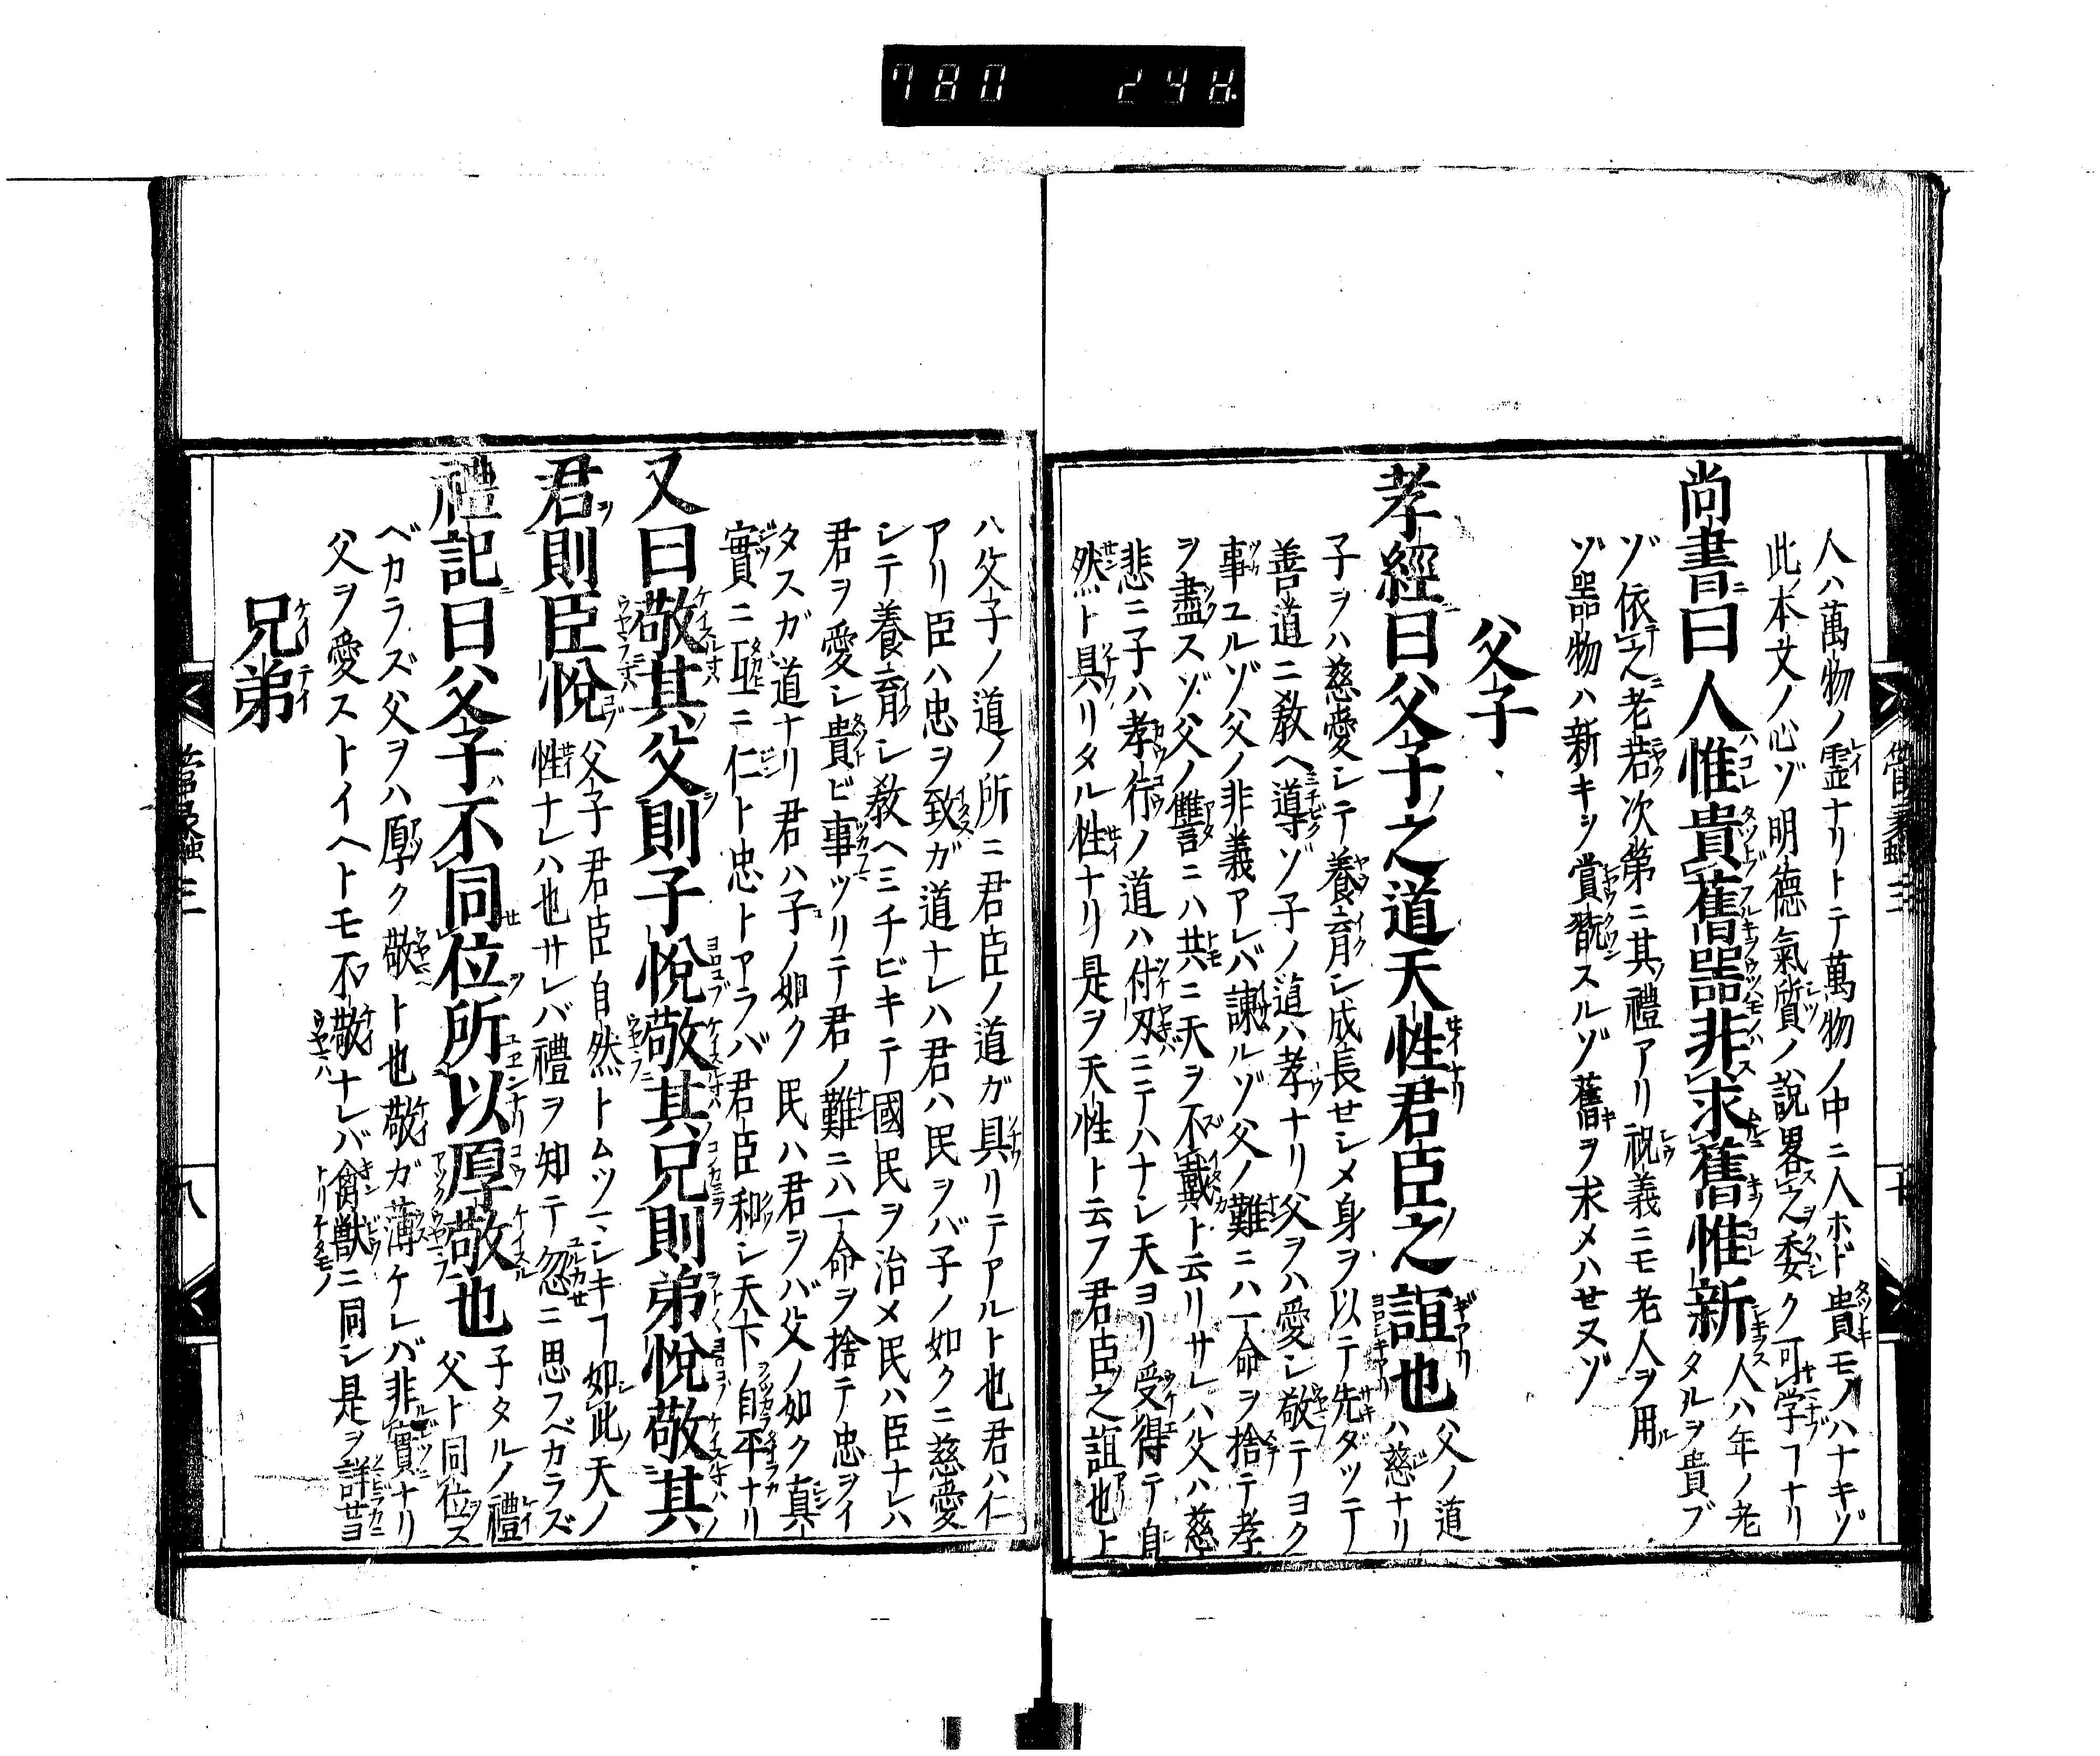 780 244.
人ハ萬物ノ霊ナリトテ萬物ノ中ニ人ホド貴キモノハナキゾ
此本文ノ心ゾ明徳氣質ノ説畧之ヲ委ク可学フナリ
尚書曰人惟貴舊器非求舊惟新人ハ年ノ老
タルヲ貴ブ
ゾ依之老若次第ニ其禮アリ祝義ニモ老人ヲ用ル
ゾ器物ハ新キヲ賞翫スルゾ舊キヲ求メハせヌゾ
父子
孝經曰父子之道天性君臣之誼也父ノ道
ハ慈ナリ
子ヲハ慈愛シテ養育シ成長せシメ身ヲ以テ先ダツテ
善道ニ敎ヘ導ゾ子ノ道ハ孝ナリ父ヲハ愛シ敬テヨク
事ユルゾ父ノ非義アレバ諌ルゾ父ノ難ニハ一命ヲ捨テ孝
ヲ盡スゾ父ノ讐ニハ共ニ天ヲ不戴ト云リサレハ父ハ慈
悲ニ子ハ孝行ノ道ハ付刄ニテハナシ天ヨリ受得テ自
然ト具リタル性ナリ是ヲ天性ト云フ君臣之誼也ト
ハ父子ノ道ノ所ニ君臣ノ道ガ具リテアルト也君ハ仁
アリ臣ハ忠ヲ致ガ道ナレハ君ハ民ヲバ子ノ如クニ慈愛
シテ養育シ敎ヘミチビキテ國民ヲ治メ民ハ臣ナレハ
君ヲ愛シ貴ビ事ツリテ君ノ難ニハ一命ヲ捨テ忠ヲイ
タスガ道ナリ君ハ子ノ如ク民ハ君ヲバ父ノ如ク真
實ニ互ニ仁ト忠トアラバ君臣和シ天下自平ナリ
又曰敬其父則子悅敬其兄則弟悅敬其
君則臣悅父子君臣自然トムツミシキフ如此天ノ
性ナレハ也サレバ禮ヲ知テ忽ニ思フベカラズ
禮記曰父子不同位所以厚敬也子タルノ禮
父ト同位ス
ベカラズ父ヲハ厚ク敬ト也敬ガ薄ケレバ非實ナリ
父ヲ愛ストイヘトモ不敬ナレバ禽獣ニ同シ是ヲ詳
兄弟
三
八